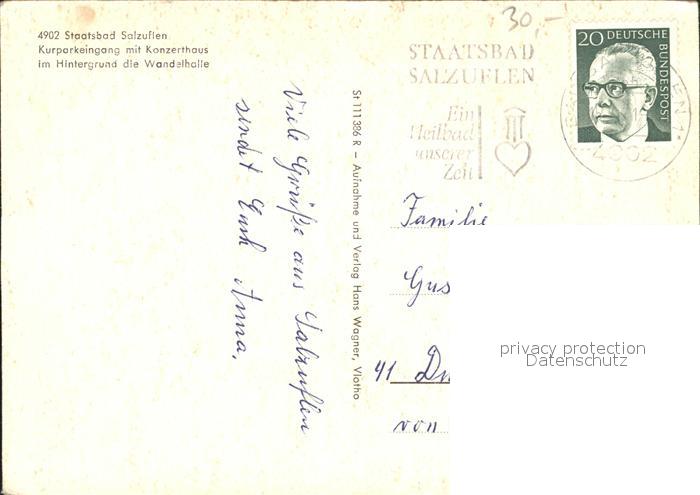 4902 Staatsbad Salzuflen
Kurparkeingang mit Konzerthaus
im Hintergrund die Wandelhalle
30,-
STAATSBAD
SALZUFLEN
Ein
Heilbad
unserer
Zeit
20 DEUTSCHE
BUNDESPOST
4902
St 111386 R – Aufnahme und Verlag Hans Wagner, Vlotho
Viele Grüße aus Salzuflen
sendet Euch Anna.
Familie
Gus
41 Du
von
privacy protection
Datenschutz